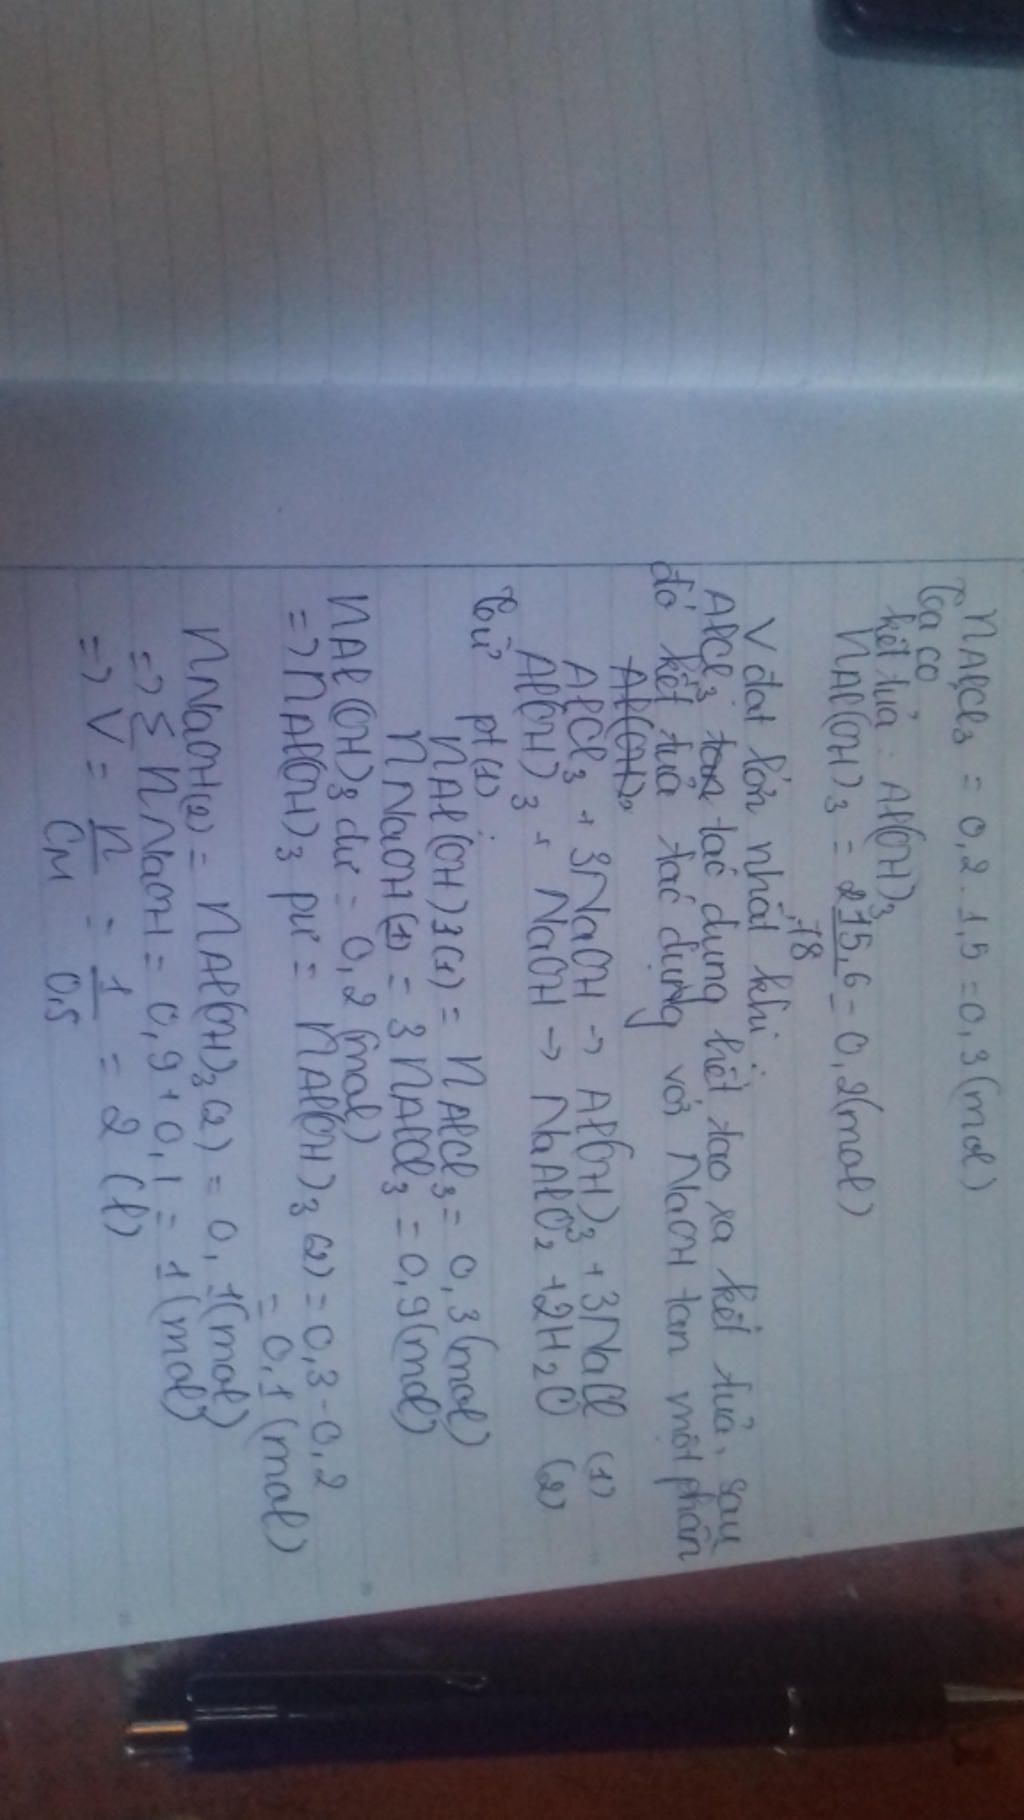 nAlCl3 = 0,2 . 1,5 = 0,3 (mol)
Ta có
kết tủa : Al(OH)3
nAl(OH)3 = 15,6 / 78 = 0,2 (mol)
V đạt lớn nhất khi :
AlCl3 tác dụng hết tạo ra kết tủa, sau
đó kết tủa tác dụng với NaOH tan một phần
Al(OH)3
AlCl3 + 3NaOH → Al(OH)3 + 3NaCl (1)
Al(OH)3 + NaOH → NaAlO2 + 2H2O (2)
Từ pt(1)
nAl(OH)3(1) = nAlCl3 = 0,3 (mol)
nNaOH(1) = 3nAlCl3 = 0,9 (mol)
nAl(OH)3 dư = 0,2 (mol)
=> nAl(OH)3 pư = nAl(OH)3 (2) = 0,3 - 0,2
= 0,1 (mol)
nNaOH(2) = nAl(OH)3 (2) = 0,1 (mol)
=> Σ nNaOH = 0,9 + 0,1 = 1 (mol)
=> V = n / CM = 1 / 0,5 = 2 (l)